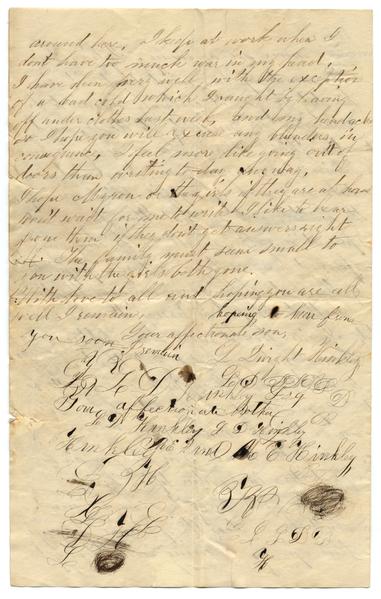 around here, I keep at work when I
don't have too much war in my head.
I have been very well with the exception
of a bad cold which I caught by leaving
off under clothes last week, and long
so I hope you will excuse any blunders in
consequence, I feel more like going out of
doors than writing to day any way,
I hope Myron or the girls if they are at home
won't wait for me to write I like to hear
from them if they don't get answers right
off. The family must seem small to
you with the girls both gone.
With love to all and hoping you are all
well I remain, hoping to hear from
you soon Your affectionate son,
I remain L Dwight Hinkley
Your affectionate brother
Hinkley
Hinkley E Hinkley